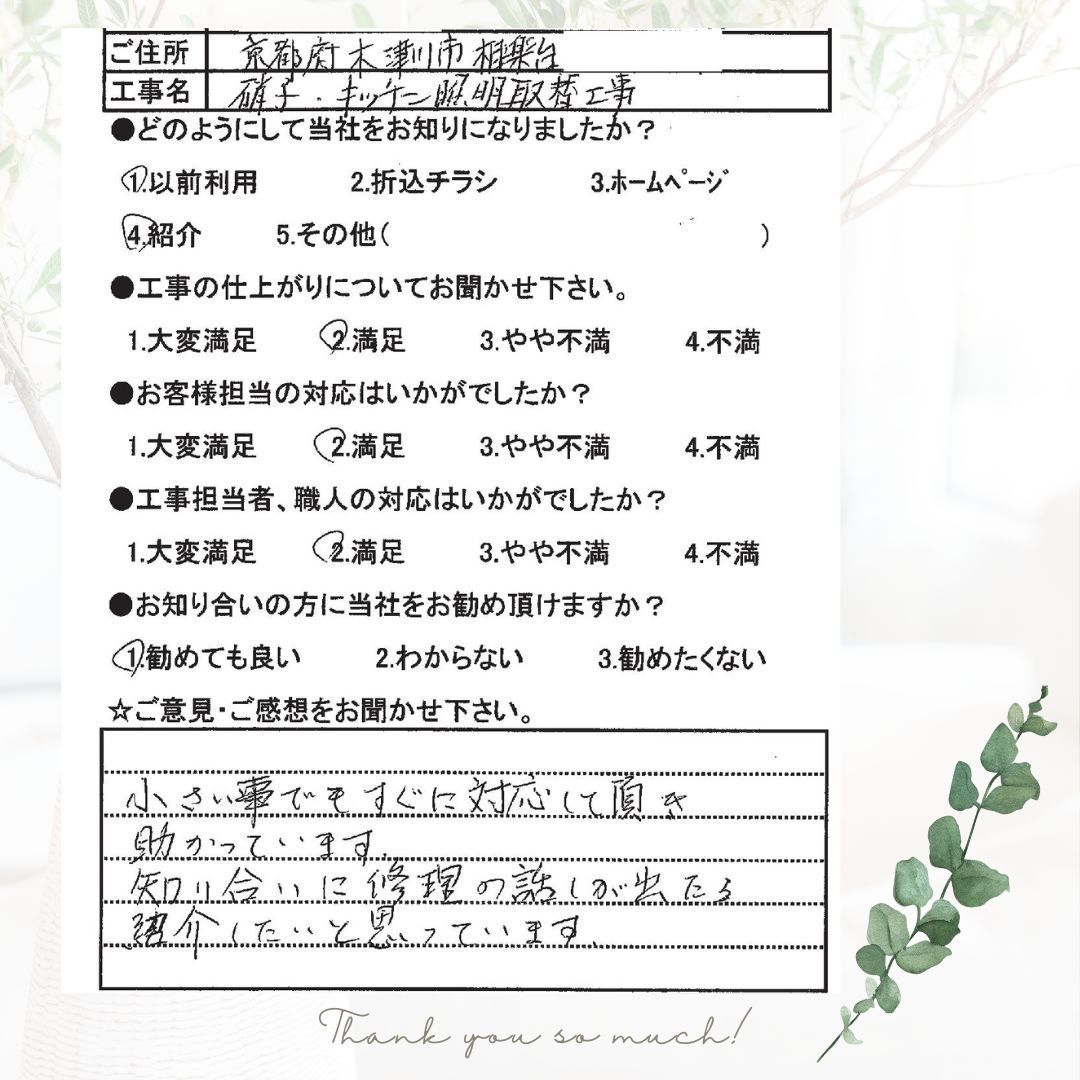 ご住所 京都府木津川市相楽台
工事名 硝子・キッチン照明取替工事
●どのようにして当社をお知りになりましたか？
1.以前利用 2.折込チラシ 3.ホームページ
4.紹介 5.その他( )
●工事の仕上がりについてお聞かせ下さい。
1.大変満足 2.満足 3.やや不満 4.不満
●お客様担当の対応はいかがでしたか？
1.大変満足 2.満足 3.やや不満 4.不満
●工事担当者、職人の対応はいかがでしたか？
1.大変満足 2.満足 3.やや不満 4.不満
●お知り合いの方に当社をお勧め頂けますか？
1.勧めても良い 2.わからない 3.勧めたくない
☆ご意見・ご感想をお聞かせ下さい。
小さい事でもすぐに対応して頂き
助かっています。
知り合いに修理の話しが出たら
紹介したいと思っています。
Thank you so much!